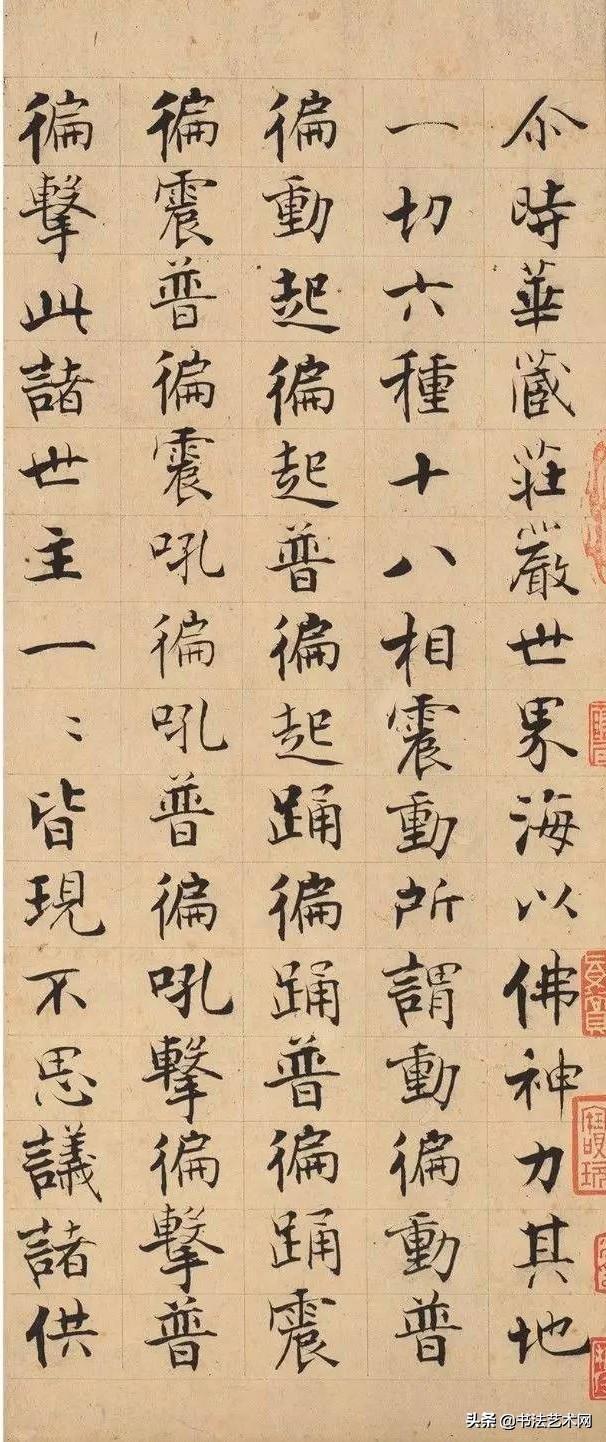 尒時華蔵莊嚴世界海以佛神力其地
一切六種十八相震動所謂動徧動普
徧動起徧起普徧起踊徧踊普徧踊震
徧震普徧震吼徧吼普徧吼擊徧擊普
徧擊此諸世主一〻皆現不思議諸供
头条 @书法艺术网